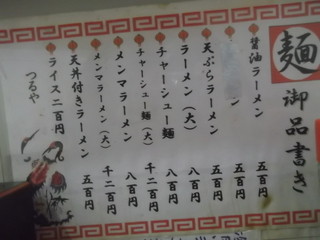 麺
御品書き
醤油ラーメン 五百円
付きラーメン 五百円
天ぷらラーメン 五百円
ラーメン(大) 八百円
チャーシュー麺 八百円
チャーシュー麺(大) 千二百円
メンマラーメン 八百円
メンマラーメン(大) 千二百円
天丼付きラーメン 五百円
ライス二百円
つるや